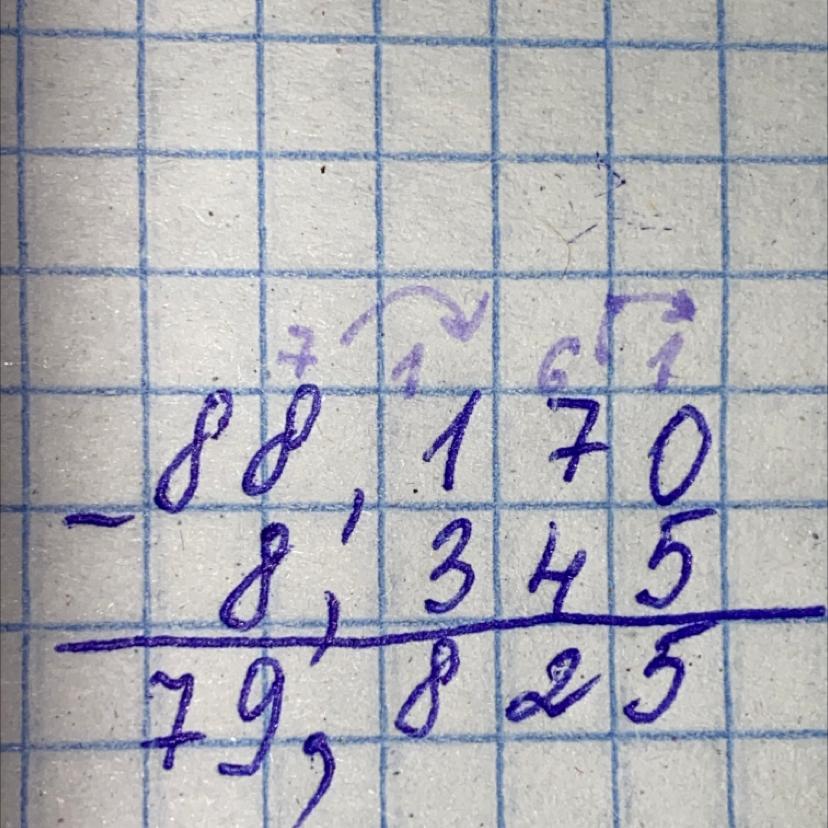 7 1 6 1
88,170
-
8,345
79,825